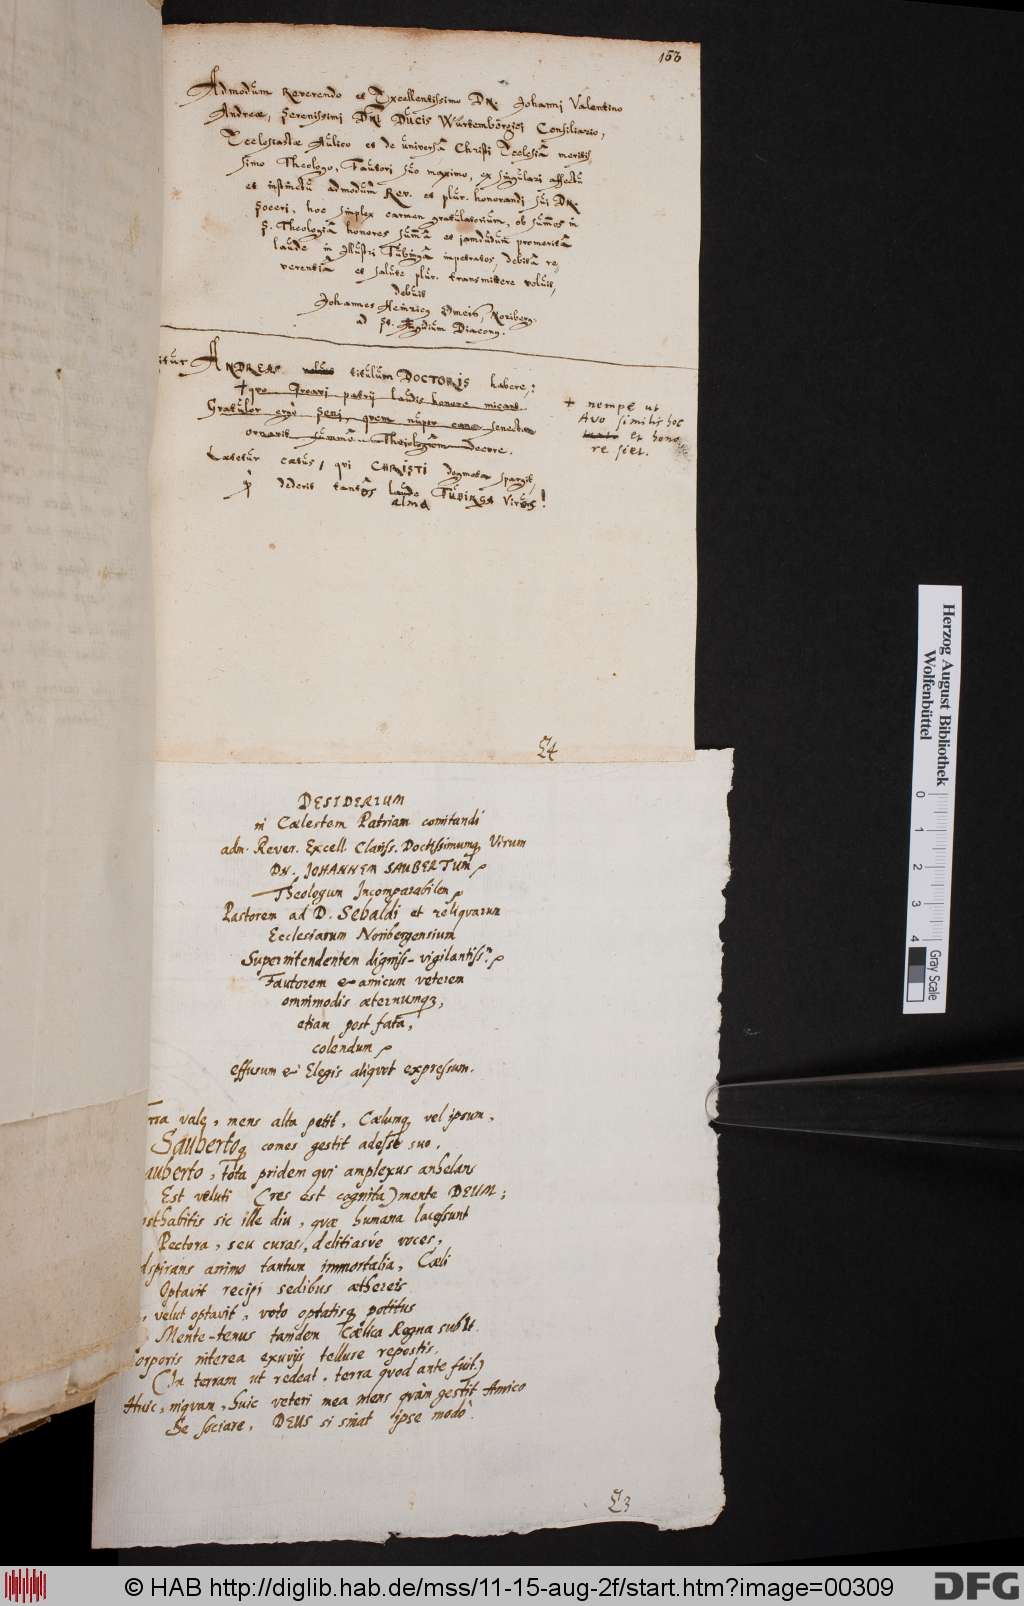 153
Admodum Reverendo et Excellentissimo Dn. Johanni Valentino
Andreæ, Serenissimi Dni Ducis Würtembergici Consiliario,
Ecclesiastæ Aulico et de universa Christi Ecclesia meritis
simo Theologo, Fautori suo maximo, ex singulari affectu
et instinctu admodum Rev. et plur. honorandi sui Dn.
Soceri, hoc simplex carmen gratulatorium, ob summos in
S. Theologia honores summa et jamdudum promerita
laude in Illustri Tubinga impetratos, debita re,
verentia et salute plur. transmittere voluit,
debuit
Johannes Heinricus Omeis, Noriberg.
ad St. Ægydium Diaconus.
itur ANDREAS titulum DOCTORIS habere,:
+ quo Proavi patrij laudis honore micant
Gratulor ergo Seni, quem nuper eane senectus
ornarit summo Theologum decore.
Lætetur cætus, qui CHRISTI dogmata spargit,
qd dederit tantos laude TUBINGA Viros!
alma
+ nempe ut
Avo similis hoc
et hono
re siet.
E4
DESIDERIUM
in Cælestem Patriam comitandi
adm. Rever. Excell. Clariss. Doctissimumq Virum
DN. JOHANNEM SAUBERTUM
Theologum Incomparabilem
Pastorem ad D. Sebaldi et reliquarum
Ecclesiarum Noribergensium
Superintendentem digniss- vigilantiss.
Fautorem & amicum veterem
omnimodis æternumq,
etiam post fata,
colendum
effusum & Elegis aliquot expressum.
rra vale, mens alta petit, Cælumq vel ipsum,
Saubertoq comes gestit adesse suo.
auberto, tota pridem qui amplexus anhelans
Est veluti (res est cognita) mente DEUM;
osthabitis sic ille diu, quæ humana lacessunt
Pectora, seu curas, delitiasve voces,
dspirans animo tantum immortalia, Cæli
Optavit recipi sedibus æthereis
, velut optavit, voto optatisq potitus
Mente-tenus tandem Cælica Regna subit.
orporis interea exuvijs telluse repostis,
(In terram ut redeat, terra quod ante fuit.)
Huic, inquam, huic veteri mea mens quàm gestit Amico
Se sociare, DEUS si sinat ipse modò.
E3
Herzog August Bibliothek
Wolfenbüttel
0 1 2 3 4
Gray Scale
© HAB http://diglib.hab.de/mss/11-15-aug-2f/start.htm?image=00309
DFG